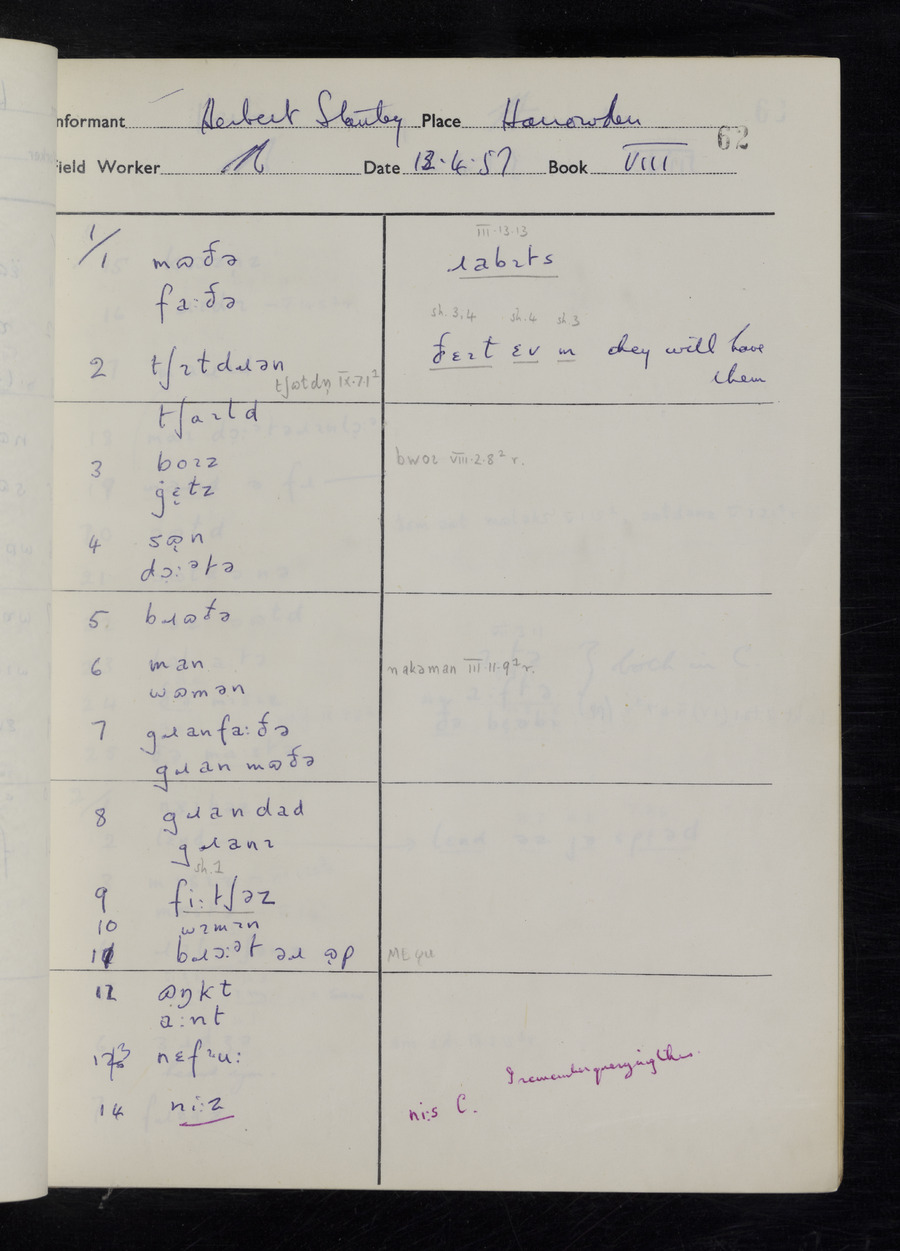 Informant Herbert Stanley Place Harrowden
62
Field Worker Date 13.4.57 Book VIII
1/1 mɷðə
fa:ðə
III.13.13
ɹabɪts
sh.3,4 sh.4 sh 3
ðɛɪt ɛv m they will have
them
2 tʃɪtdɹən
tʃɷtdṇ IX.7.1²
tʃaɪtd
3 bɔɪz
gɛ̣tz
bwɔɪ VIII.2.8² r.
4 sɷ̣n
dɔ̣:ətə
5. bɹɷðə
6 man
wɷmən
nakəman III.11.9² r.
7 gɹanfa:ðə
gɹan mɷðə
8 gɹandad
gɹanɪ
sh.1
9 fi:tʃəz
10 wɪmɪn
11 bɹɔ:ət əɹ ɷ̣p
ME ɣu
12 ɷ̣ŋkt
a:nt
13 nɛfɪu:
I remember querying this.
14 ni:z
ni:s C.